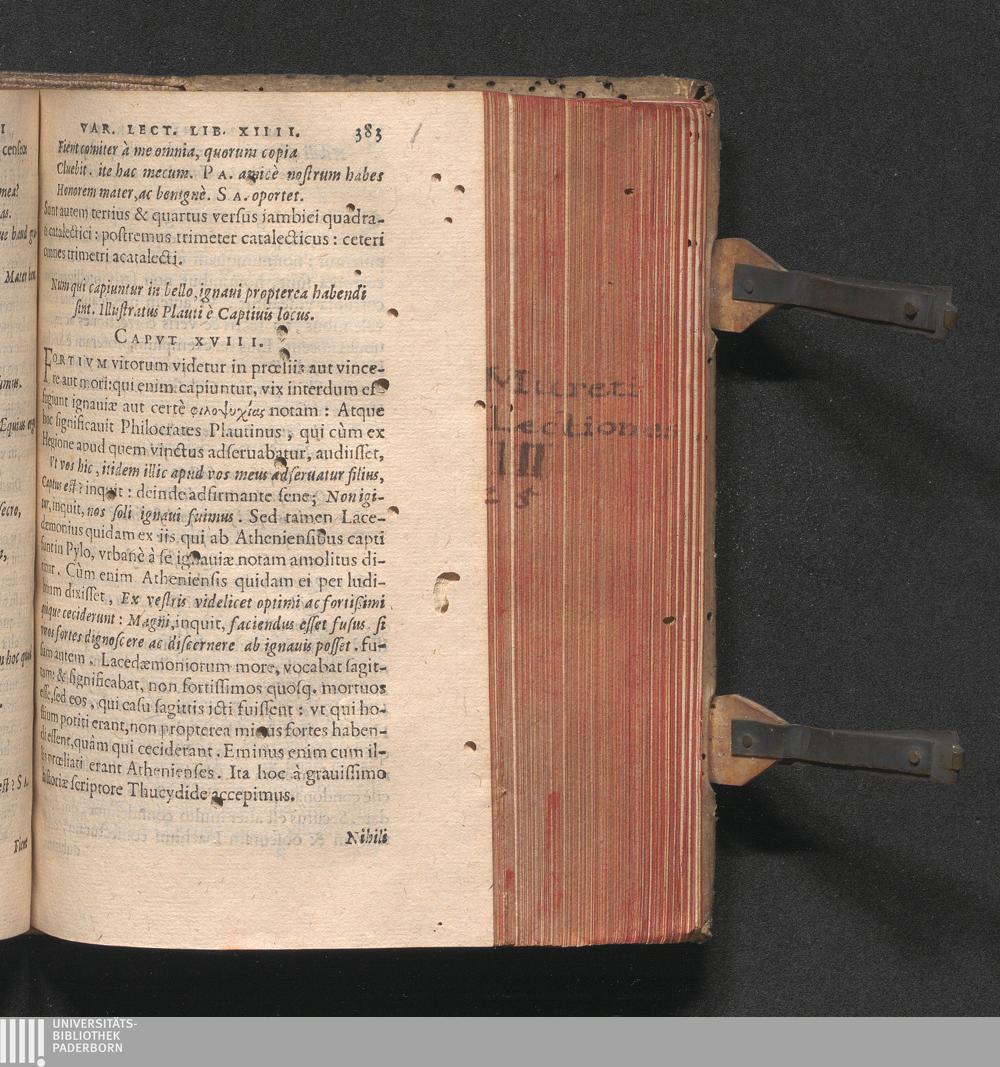 VAR. LECT. LIB. XIIII. 383
Fient comiter à me omnia, quorum copia
Cluebit. ite hac mecum. PA. amicè nostrum habes
Honorem mater, ac benignè. SA. oportet.
Sunt autem tertius & quartus versus iambici quadra-
ti catalectici: postremus trimeter catalecticus: ceteri
omnes trimetri acatalecti.
Num qui capiuntur in bello, ignaui propterea habendi
sint. Illustratus Plauti è Captiuis locus.
CAPVT XVIII.
FORTIVM virorum videtur in prœliis aut vince-
re aut mori: qui enim capiuntur, vix interdum ef-
fugiunt ignauiæ aut certè φιλοψυχίας notam: Atque
hoc significauit Philocrates Plautinus, qui cùm ex
Hegione apud quem vinctus adseruabatur, audiisset,
Vt vos hic, itidem illic apud vos meus adseruatur filius,
Captus est? inquit: deinde adfirmante sene; Non igi-
tur, inquit, nos soli ignaui fuimus. Sed tamen Lace-
dæmonius quidam ex iis, qui ab Atheniensibus capti
sunt in Pylo, vrbanè à se ignauiæ notam amolitus di-
citur. Cùm enim Atheniensis quidam ei per ludi-
brium dixisset, Ex vestris videlicet optimi ac fortissimi
quique ceciderunt: Magni, inquit, faciendus esset fusus si
viros fortes dignoscere ac discernere ab ignauis posset. fu-
sum autem, Lacedæmoniorum more, vocabat sagit-
tam: & significabat, non fortissimos quosq. mortuos
esse, sed eos, qui casu sagittis icti fuissent: vt qui ho-
stium potiti erant, non propterea minus fortes haben-
di essent, quàm qui ceciderant. Eminus enim cum il-
lis prœliati erant Athenienses. Ita hoc à grauissimo
historiæ scriptore Thucydide accepimus.
Nihili
Mureti
Lectiones
III
25
censea
mea?
Mater
Æquius
est? SA.
Fient
UNIVERSITÄTS-
BIBLIOTHEK
PADERBORN